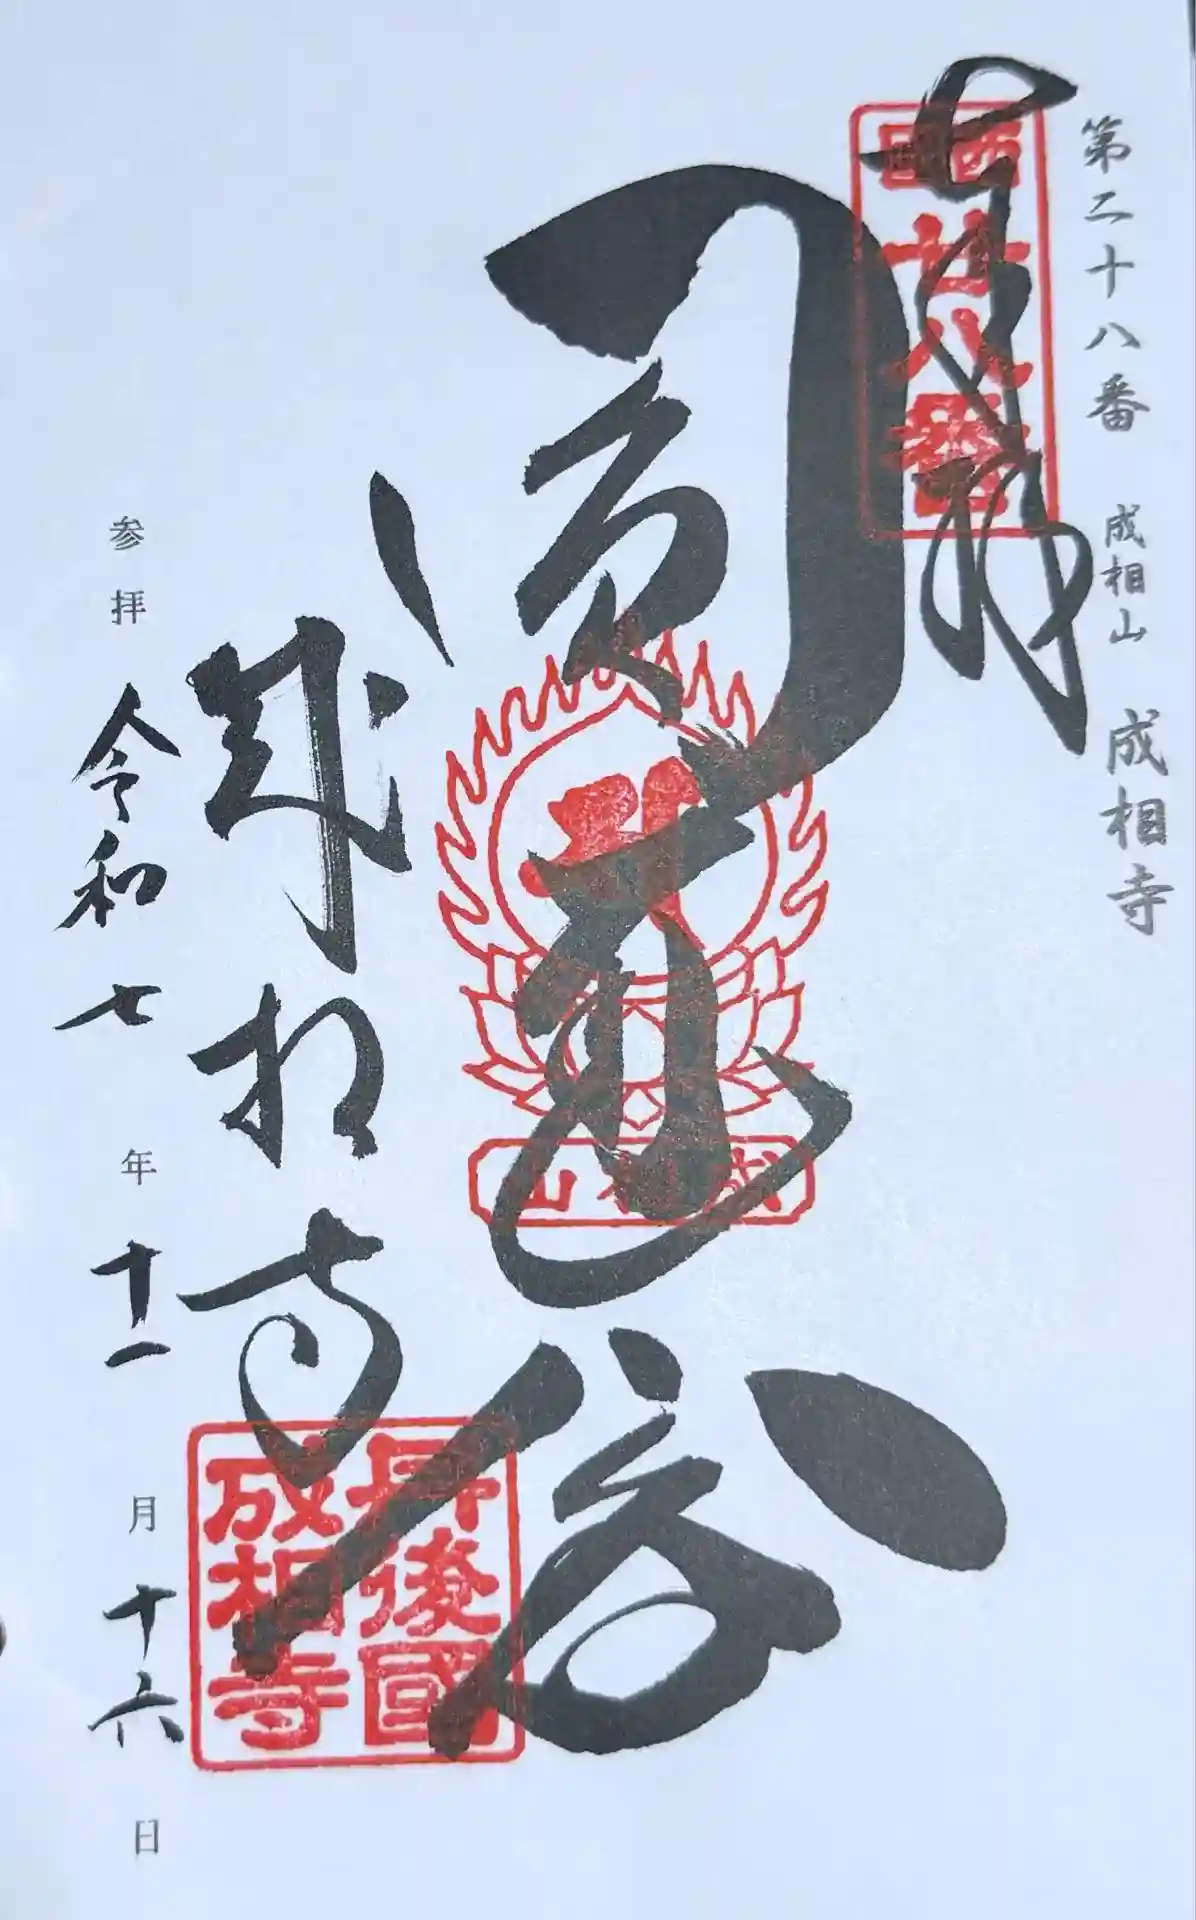 第二十八番 成相山 成相寺
奉拝
西國廿八番
成相山
成相寺
丹後國
成相寺
参拝 令和七年十一月十六日